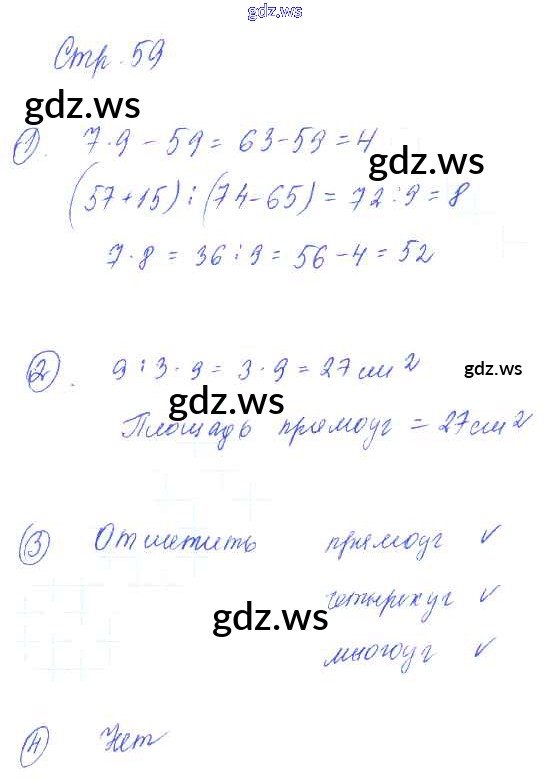 gdz.ws
Стр. 59
gdz.ws
1). 7·9-59=63-59=4
gdz.ws
(57+15):(74-65)=72:9=8
7·8=36:9=56-4=52
2). 9:3·9=3·9=27 см 2
gdz.ws
gdz.ws
Площадь прямоуг = 27 см 2
3) Отметить прямоуг ✓
четырехуг ✓
gdz.ws
многоуг ✓
4) Нет